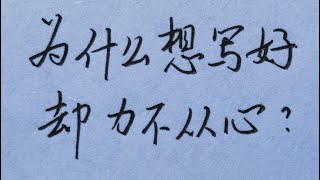 为什么想写好
却力不从心?